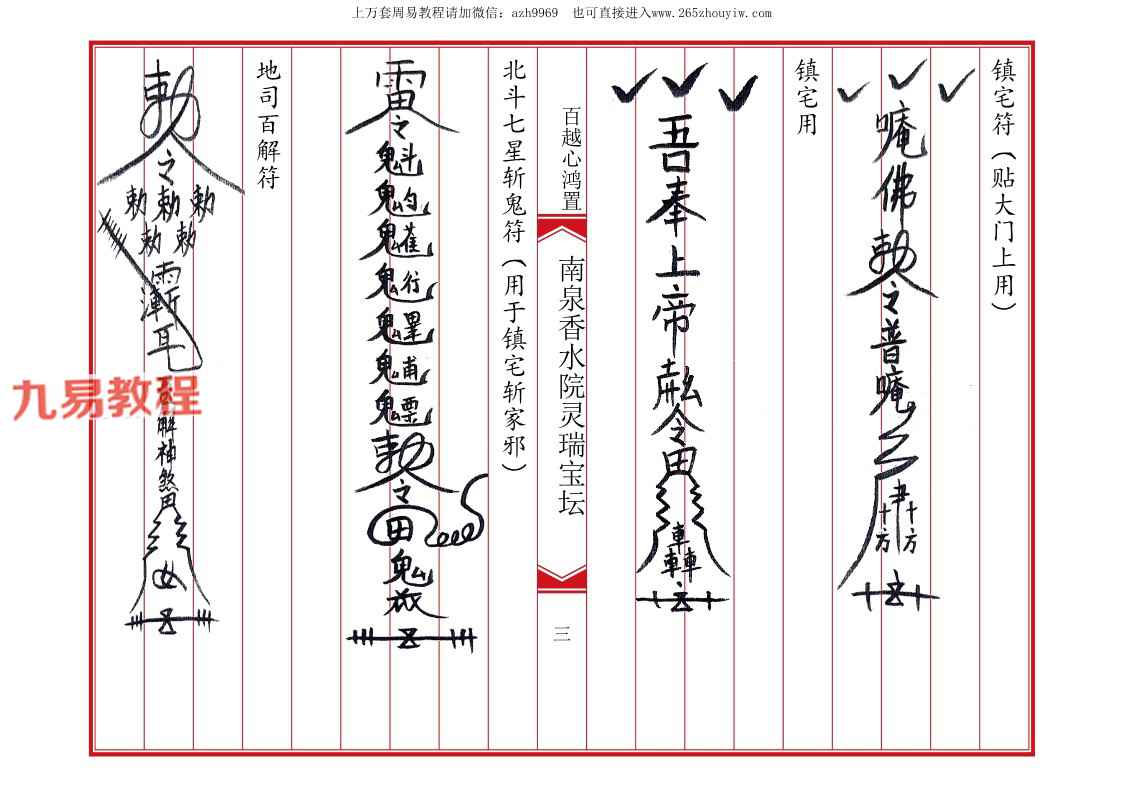 上万套周易教程请加微信：azh9969　也可直接进入www.265zhouyiw.com
镇宅符（贴大门上用）
唵佛勅令普唵
十方
十方
镇宅用
吾奉上帝
令田
車車車
百越心鸿置
南泉香水院灵瑞宝坛
三
北斗七星斩鬼符（用于镇宅斩家邪）
雷令
魁魓
勅令田鬼
地司百解符
勅令
勅勅勅
勅勅
解神煞
九易教程